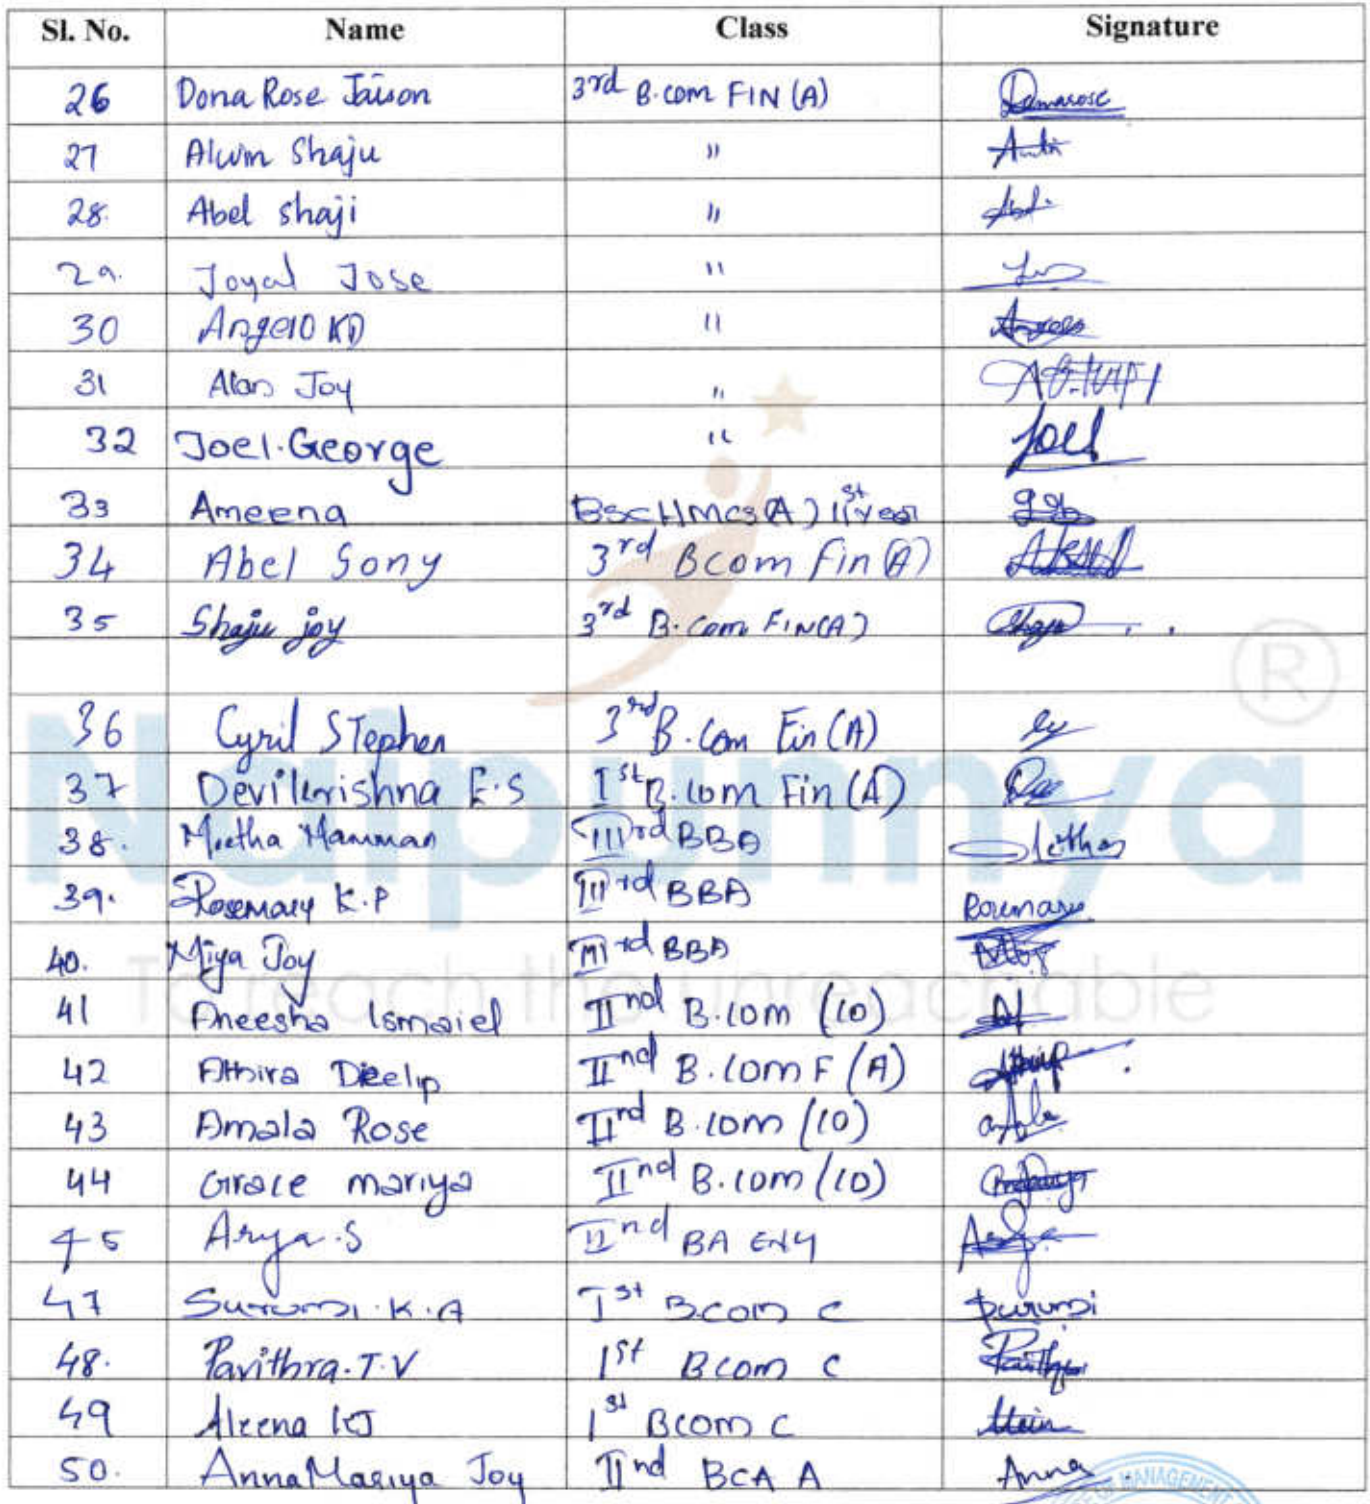 Sl. No. Name Class Signature
26 Dona Rose Jaison 3rd B.com FIN (A) Donarose
27 Alwin Shaju "
28. Abel shaji "
29. Joyal Jose "
30 Angelo KD "
31 Alan Joy "
32 Joel.George " Joel
33 Ameena
34 Abel Sony 3rd Bcom Fin (A)
35 Shaju joy 3rd B.Com FIN(A)
36 Cyril Stephen 3rd B.Com Fin (A)
37 Devikrishna E.S Ist B.com Fin (A)
38. Mamman IIIrd BBA
39. Rosemary K.P IIIrd BBA Rosemary
40. Miya Joy IIIrd BBA
41 Aneesha Ismaiel IInd B.com (CO)
42 Athira Dileelip IInd B.com F (A)
43 Amala Rose IInd B.com (CO)
44 Grace mariya IInd B.com (CO)
45 Arya.S IInd BA ENG
47 Surumi.K.A Ist B.com C Surumi
48. Pavithra.T.V 1st Bcom C
49 Aleena KJ 1st Bcom C
50. Anna Mariya Joy IInd BCA A Anna
Naipunnya ®
To reach the unreachable
OF MANAGEMENT